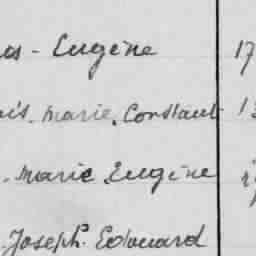 - Eugène 17
Marie. Constant 1
- Marie Eugène
- Joseph. Edouard